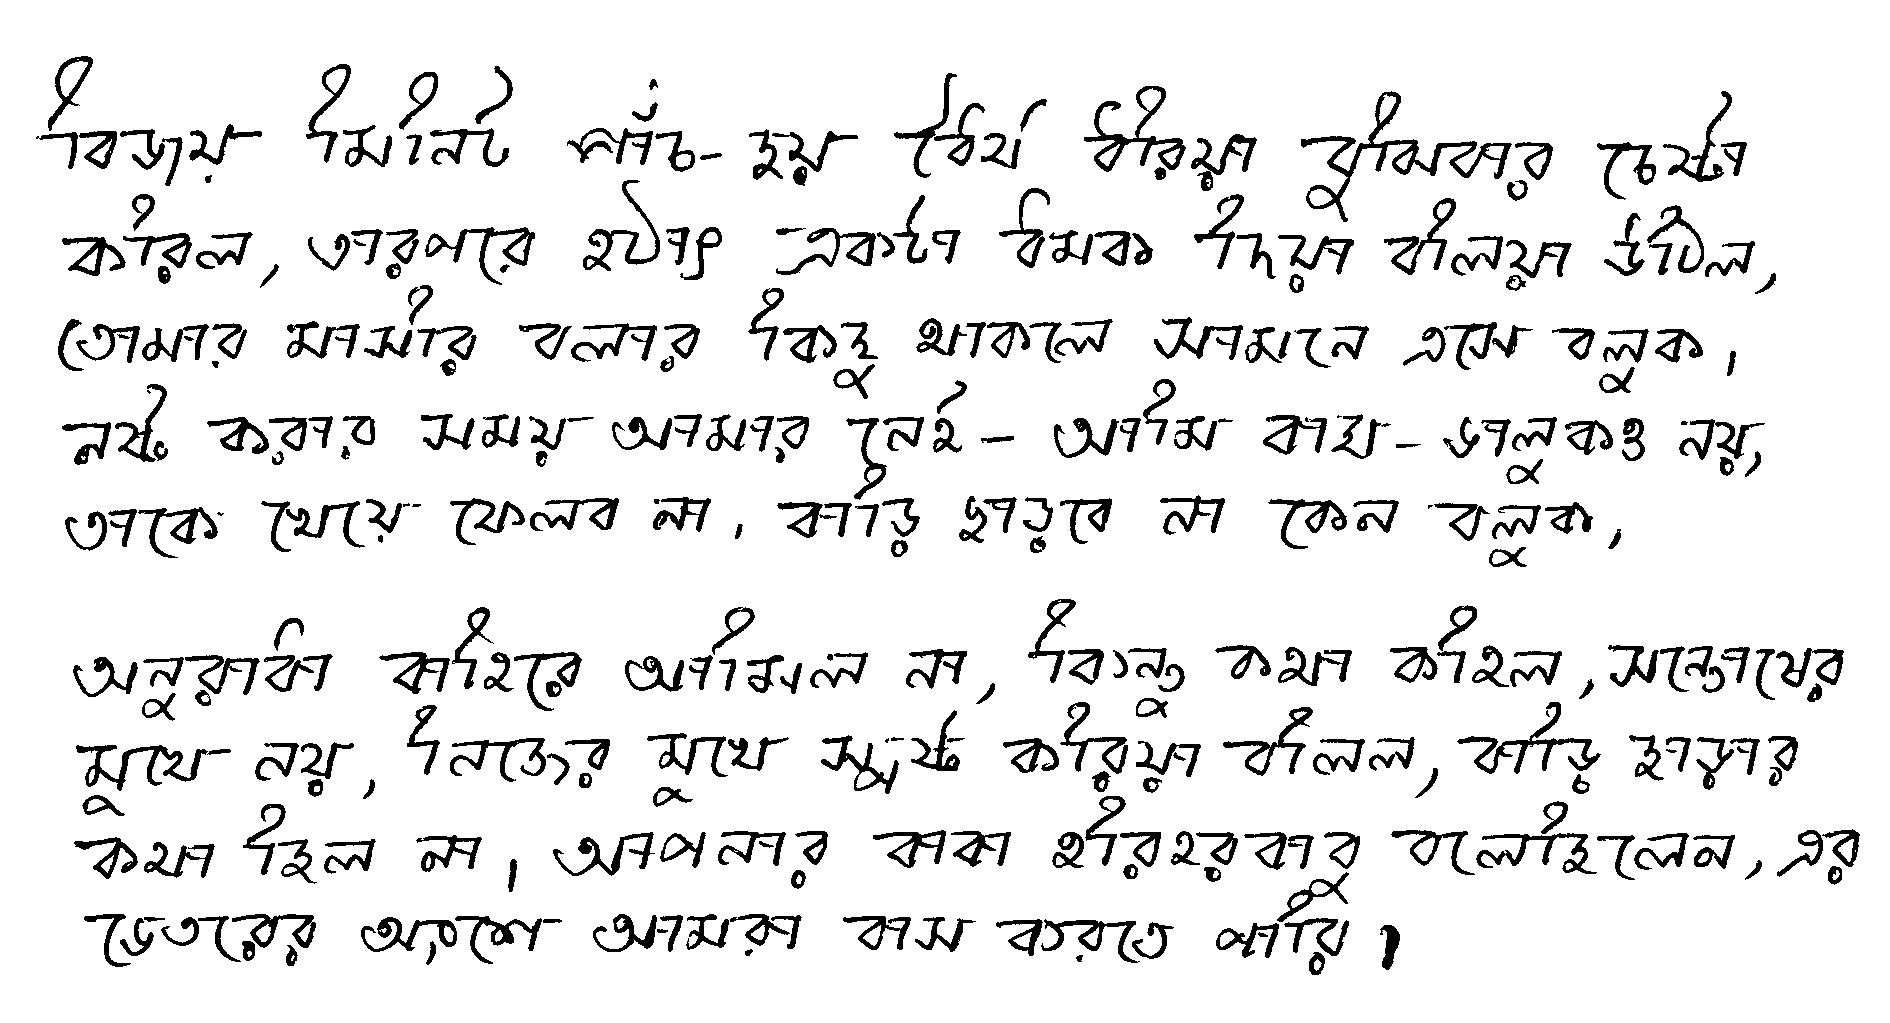 বিজয় মিনিট পাঁচ-ছয় ধৈর্য ধরিয়া বুঝিবার চেষ্টা
করিল, তারপরে হঠাৎ একটা ধমক দিয়া বলিয়া উঠিল,
তোমার মাসীর বলার কিছু থাকলে সামনে এসে বলুক।
নষ্ট করার সময় আমার নেই – আমি বাঘ-ভালুকও নয়,
তাকে খেয়ে ফেলব না। বাড়ি ছাড়বে না কেন বলুক,
অনুরাধা বাহিরে আসিল না, কিন্তু কথা কহিল, সন্তোষের
মুখে নয়, নিজের মুখে স্পষ্ট করিয়া বলিল, বাড়ি ছাড়ার
কথা ছিল না। আপনার বাবা হরিহরবাবু বলেছিলেন, এর
ভেতরের অংশে আমরা বাস করতে পারি।